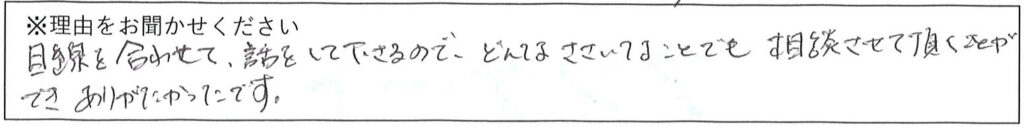 ※理由をお聞かせください
目線を合わせて、話をして下さるので、どんなささいなことでも相談させて頂くことが
でき ありがたかったです。